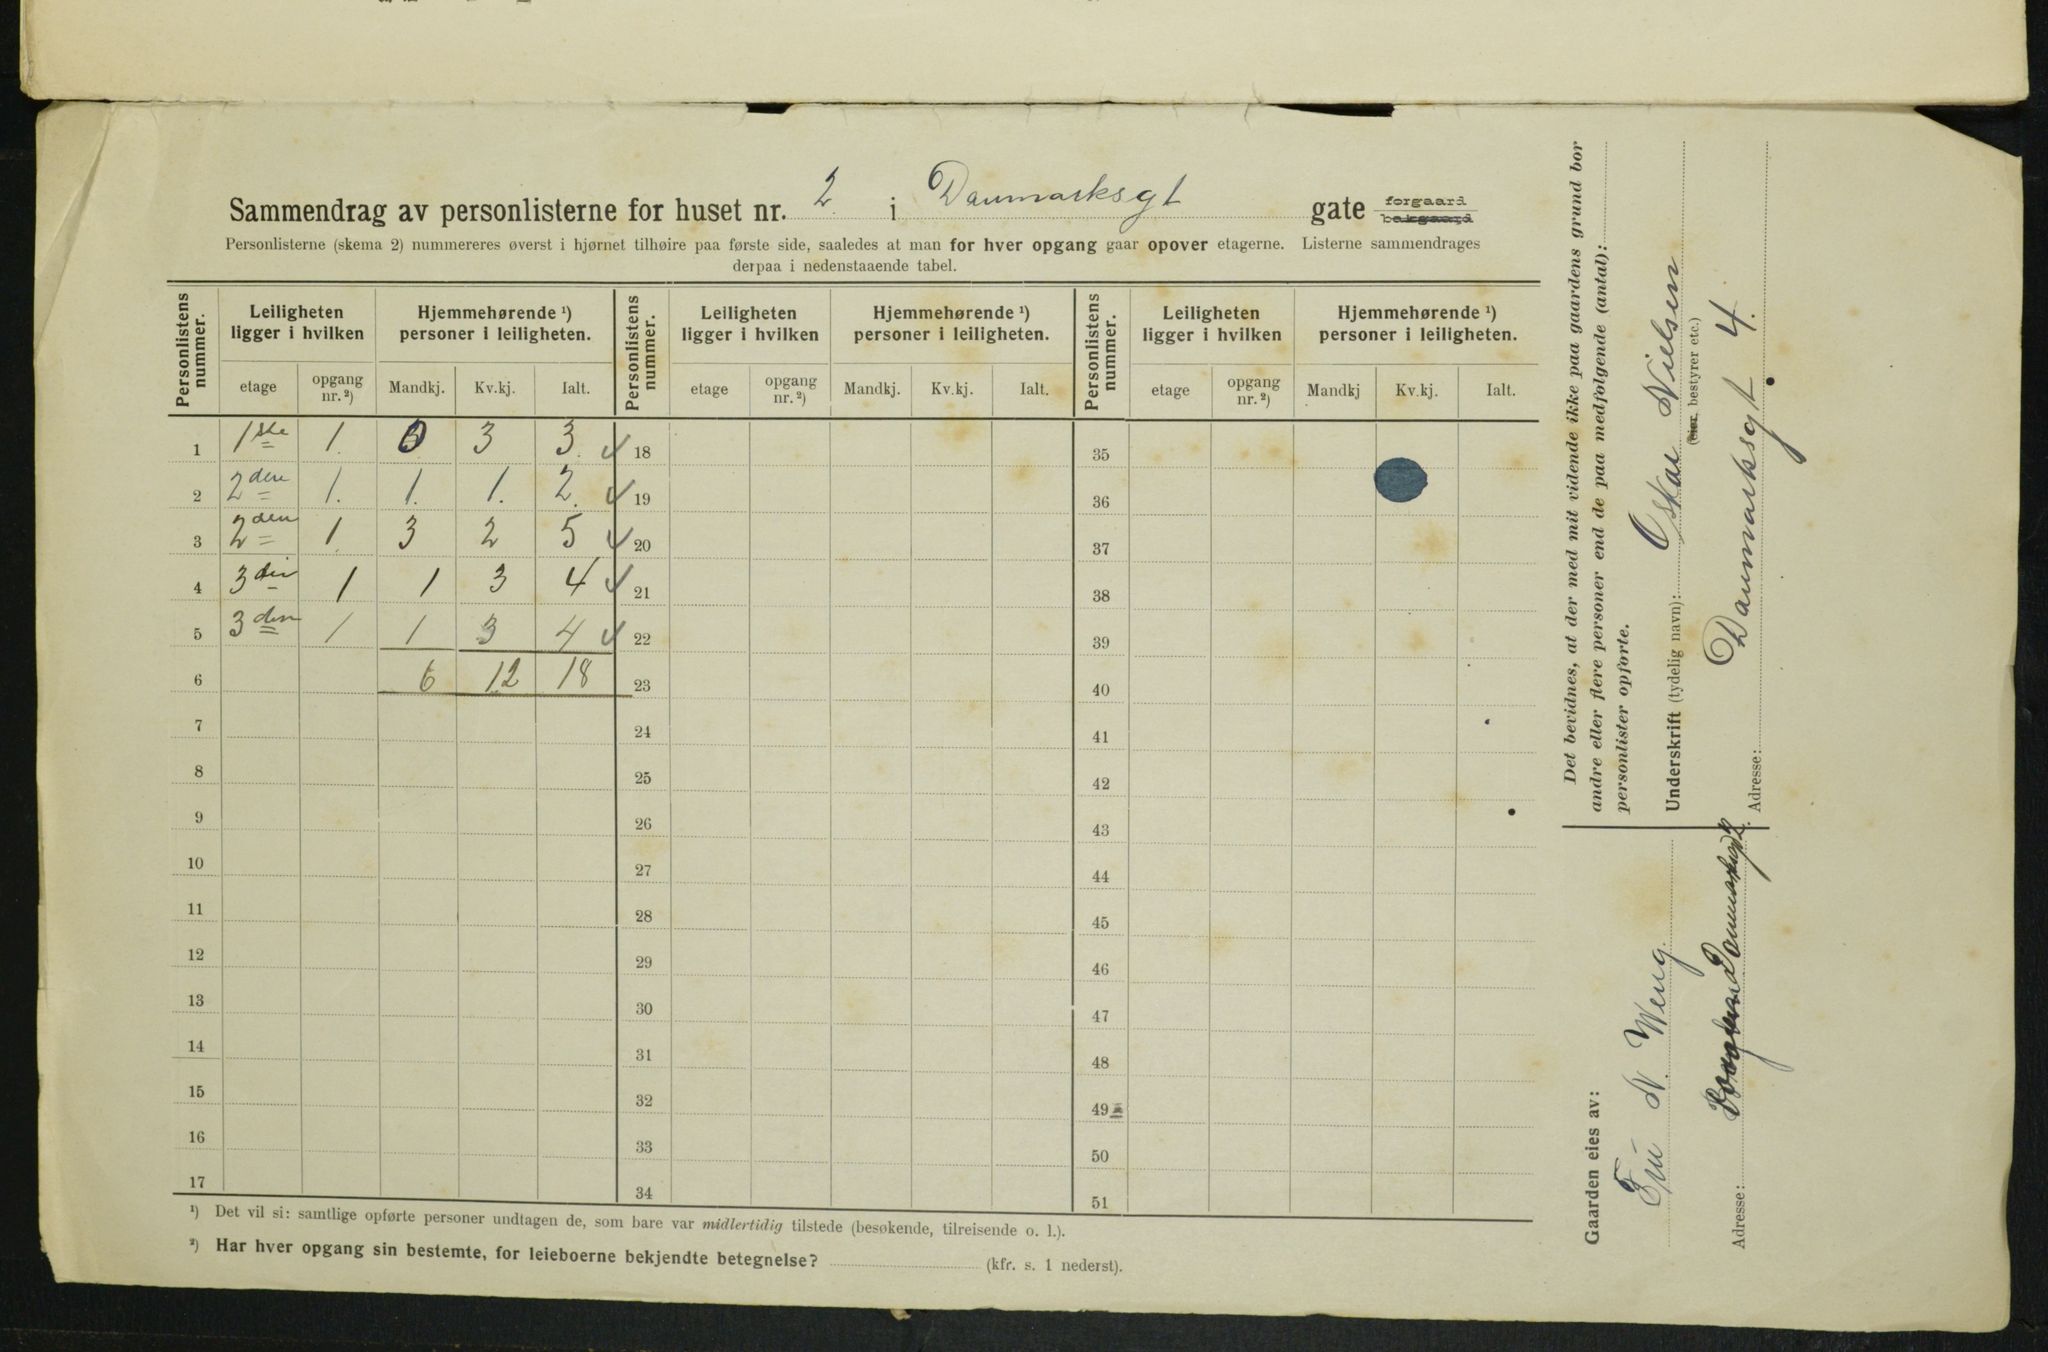 Sammendrag av personlisterne for huset nr. 2 i Danmarksgt gate forgaard bakgaard
Personlisterne (skema 2) nummereres øverst i hjørnet tilhøire paa første side, saaledes at man for hver opgang gaar opover etagerne. Listerne sammendrages
derpaa i nedenstaaende tabel.
Personlistens nummer. Leiligheten ligger i hvilken Hjemmehørende ¹) personer i leiligheten. Personlistens nummer. Leiligheten ligger i hvilken Hjemmehørende ¹) personer i leiligheten. Personlistens nummer. Leiligheten ligger i hvilken Hjemmehørende ¹) personer i leiligheten.
etage opgang nr. ²) Mandkj. Kv.kj. Ialt. etage opgang nr. ²) Mandkj. Kv.kj. Ialt. etage opgang nr. ²) Mandkj Kv.kj. Ialt.
1 1ste 1. 0 3 3. 18 35
2 2den 1. 1. 1. 2. 19 36
3 2den 1. 3 2 5 20 37
4 3die 1 1 3 4 21 38
5 3den 1 1 3 4 22 39
6 6 12 18 23 40
7 24 41
8 25 42
9 26 43
10 27 44
11 28 45
12 29 46
13 30 47
14 31 48
15 32 49
16 33 50
17 34 51
¹) Det vil si: samtlige opførte personer undtagen de, som bare var midlertidig tilstede (besøkende, tilreisende o. l.).
²) Har hver opgang sin bestemte, for leieboerne bekjendte betegnelse? (kfr. s. 1 nederst).
Det bevidnes, at der med mit vidende ikke paa gaardens grund bor
andre eller flere personer end de paa medfølgende (antal):
personlister opførte.
Underskrift (tydelig navn): Oskar Nielsen
(eier, bestyrer etc.)
Adresse: Danmarksgt 4.
Gaarden eies av:
N. Weng.
Adresse: Danmarksgt 2.